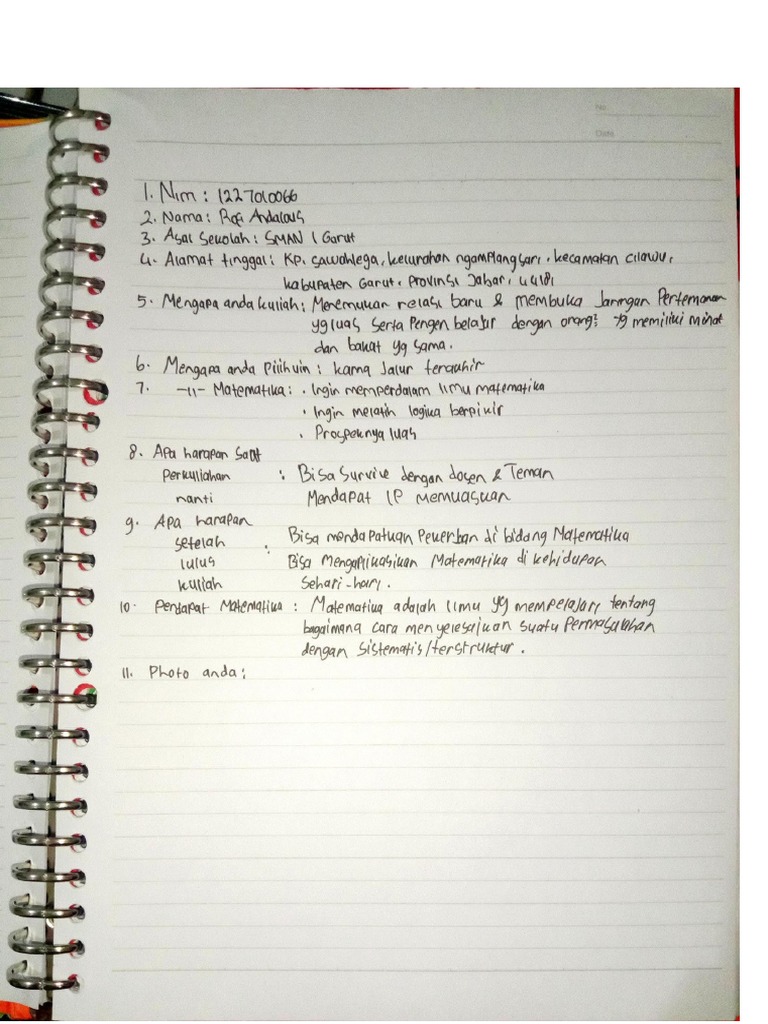 No
Date
1. Nim : 1227010066
2. Nama : Rofi Andalous
3. Asal Sekolah : SMAN 1 Garut
4. Alamat tinggal : KP. sawahlega, kelurahan ngamplangsari, kecamatan cilawu,
kabupaten Garut, Provinsi Jabar, 44181
5. Mengapa anda kuliah : Menemukan relasi baru & membuka Jaringan Pertemanan
yg luas serta Pengen belajar dengan orang² yg memiliki minat
dan bakat yg sama.
6. Mengapa anda Pilih uin : karna Jalur terakhir
7. -11- Matematika : • Ingin memperdalam ilmu matematika
• Ingin melatih logika berpikir
• Prospeknya luas
8. Apa harapan saat
Perkuliahan : Bisa Survive dengan dosen & Teman
nanti Mendapat IP Memuaskan
9. Apa harapan
setelah Bisa mendapatkan Pekerjaan di bidang Matematika
lulus : Bisa Mengaplikasikan Matematika di kehidupan
kuliah Sehari-hari.
10. Pendapat Matematika : Matematika adalah ilmu yg mempelajari tentang
bagaimana cara menyelesaikan suatu Permasalahan
dengan Sistematis/terstruktur.
11. Photo anda :